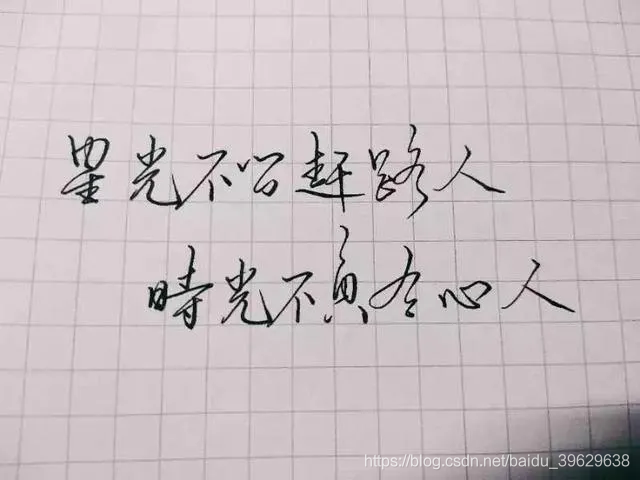 星光不问赶路人
時光不負有心人
https://blog.csdn.net/baidu_39629638